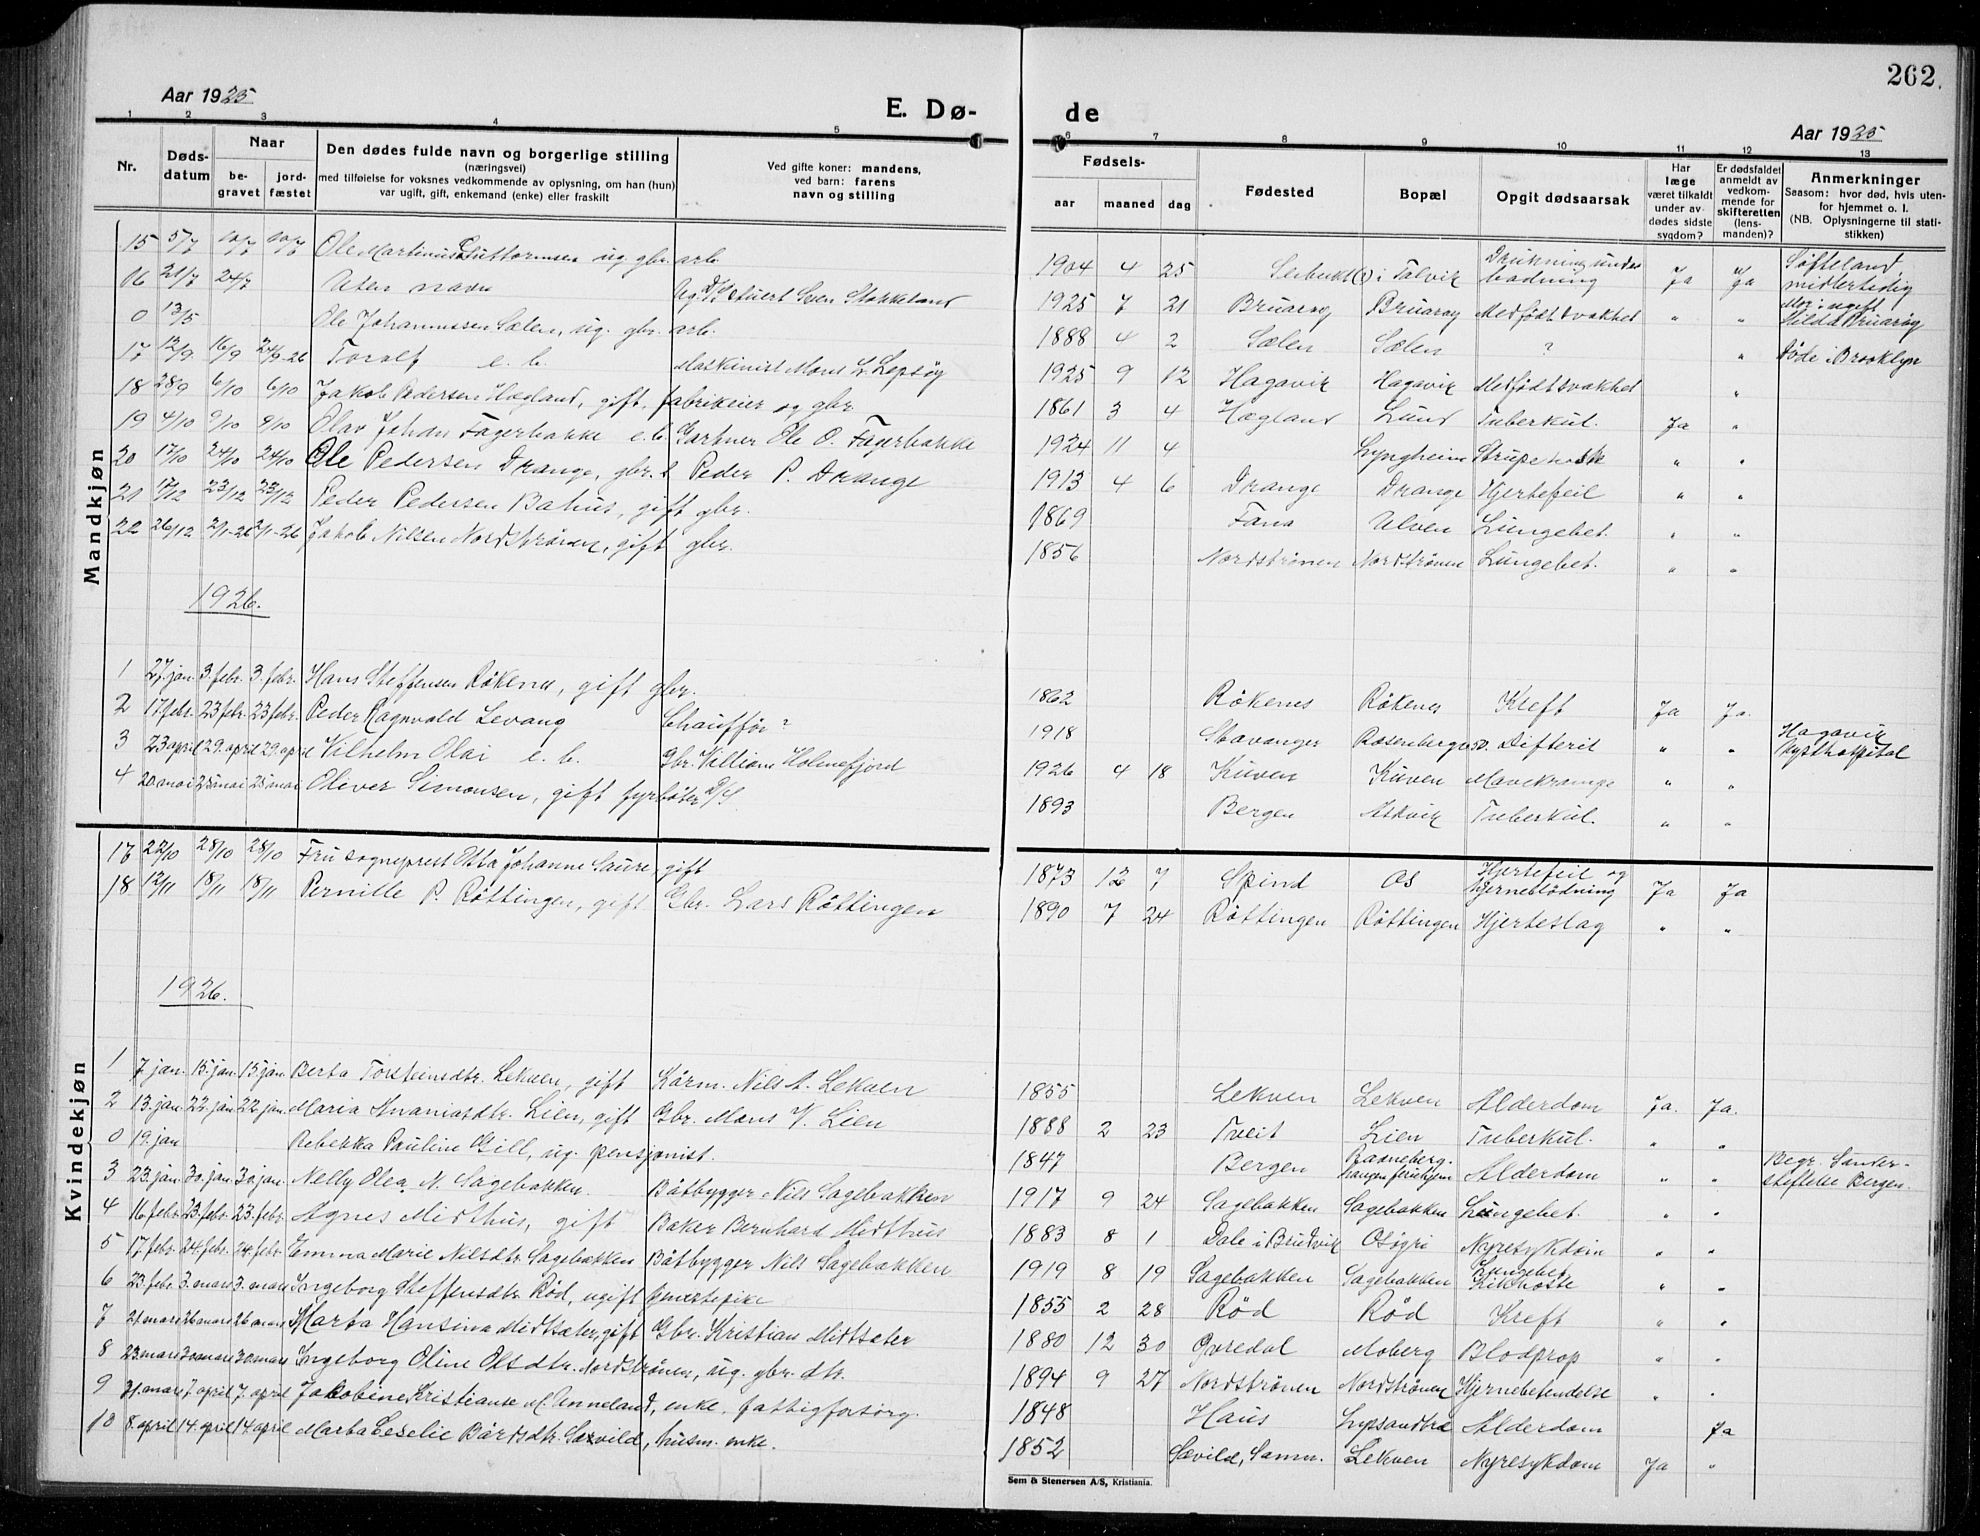 262.
Aar 1925
E. Dø-
de
Aar 1925
1 2 3 4 5 6 7 8 9 10 11 12 13
Nr.
Døds-datum
Naar
be-gravet
jord-fæstet
Den dødes fulde navn og borgerlige stilling
(næringsvei)
med tilføielse for voksnes vedkommende av oplysning, om han (hun)
var ugift, gift, enkemand (enke) eller fraskilt
Ved gifte koner: mandens,
ved barn: farens
navn og stilling
Fødsels-
aar maaned dag
Fødested
Bopæl
Opgit dødsaarsak
Har læge været tilkaldt under av-dødes sidste sygdom?
Er dødsfaldet anmeldt av vedkom-mende for skifteretten (lens-manden)?
Anmerkninger
Saasom: hvor død, hvis uten-for hjemmet o. l.
(NB. Oplysningerne til stati-stikken)
Mandkjøn
15 5/7 10/7 10/7 Ole Martinus Guttormsen ug. gbr. arb. 1904 4 25 i Talvik Drukning under badning Ja Ja Søfteland midlertidig
16 21/7 24/7 Uten navn Ug. Stokkeland 1925 7 21 Bruarøy Bruarøy Medfødt svakhet " " Mor: ugift Hilda Bruarøy
0 13/5 Ole Johannessen Sælen, ug. gbr. arb. 1888 4 2 Sælen Sælen ? " Døde i Brooklyn
17 12/9 16/9 24/9-26 Toralf e. b. Maskinist Mons L. Lepsøy 1925 9 12 Hagavik Hagavik Medfødt svakhet "
18 28/9 6/10 6/10 Jakob Pedersen Hægland, gift, fabrikeier og gbr. 1861 3 4 Hægland Lund Tuberkul. Ja "
19 4/10 9/10 9/10 Olav Johan Fagerbakke e.b. Gartner Ole O. Fagerbakke 1924 11 4 Lyngheim Strupehoste " "
20 17/10 24/10 24/10 Ole Pedersen Drange, gbr. s. Peder P. Drange 1913 4 6 Drange Drange Hjertefeil " "
21 17/12 23/12 23/12 Peder Pedersen Bahus, gift gbr. 1869 Fana Ulven Lungebet. " "
22 26/12 2/1-26 2/1-26 Jakob Nilsen Nordstrønen, gift gbr. 1856 Nordstrønen Nordstrønen Lungebet. " "
1926.
1 27. jan. 3. febr. 3. febr. Hans Steffensen Røkenes, gift gbr. 1862 Røkenes Røkenes Kreft Ja Ja.
2 17. febr. 23 febr. 23 febr. Peder Ragnvald Levang Chauffør ? 1918 Stavanger Difterit " " Hagavik Kysthospital
3 23 april 29. april 29. april Vilhelm Olai e. b. Gbr. Villiam Holmefjord 1926 4 18 Kuven Kuven Mavekrampe "
4 20 mai 25 mai 25 mai Oliver Simonsen, gift fyrbøter D/S 1893 Bergen Askvik Tuberkul. " "
Kvindekjøn
17 22/10 28/10 28/10 Fru sogneprest Asta Johanne Saure, gift 1873 12 7 Spind Os Hjertefeil og hjerneblødning Ja Ja
18 12/11 18/11 18/11 Pernille P. Røttingen, gift Gbr. Lars Røttingen 1890 7 24 Røttingen Røttingen Hjerteslag " "
1926.
1 7 jan. 15. jan. 15. jan. Berta Torsteinsdtr. Lekven, gift Kårm. Nils A. Lekven 1855 Lekven Lekven Alderdom Ja. Ja.
2 13. jan. 22. jan. 22. jan. Maria Ananiasdtr. Lien, gift Gbr. Mons V. Lien 1888 2 23 Tveit Lien Tuberkul. " "
0 19. jan Rebekka Pauline Gill, ug. pensjonist. 1847 Bergen Alderdom " " Begr. Bergen.
3 23. jan. 30. jan. 30. jan. Nelly Olea N. Sagebakken. Båtbygger Nils Sagebakken 1917 9 24 Sagebakken Sagebakken Lungebet. " "
4 16 febr. 23. febr. 23. febr. Agnes Midthus, gift Baker Bernhard Midthus 1883 8 1 Dale i Brudvik Osøyri Nyresykdom " "
5 17. febr. 24. febr. 24. febr. Emma Marie Nilsdtr. Sagebakken Båtbygger Nils Sagebakken 1919 8 19 Sagebakken Sagebakken Lungebet. Kikhoste " "
6 23. febr. 3. mars 3. mars Ingeborg Steffensdtr. Rød, ugift 1855 2 28 Rød Rød Kreft " "
7 21. mars 26 mars 26 mars Marta Hansina Midtsæter, gift Gbr. Kristian Midtsæter 1880 12 30 Øvredal Moberg Blodprop " "
8 23. mars 30. mars 30. mars Ingeborg Oline Olsdtr. Nordstrønen, ug. gbr. dtr. 1894 9 27 Nordstrønen Nordstrønen Hjernebetendelse " "
9 31. mars 7. april 7. april Jakobine Kristianse M. Anneland, enke, fattigforsørg. 1848 Haus Alderdom Ja
10 8. april 14. april 14. april Marta Cecelie Bårdsdtr. Sævild, husm. enke. 1852 Sævild, Samn. Lekven Nyresykdom Ja "
Sem & Stenersen A/S, Kristiania.